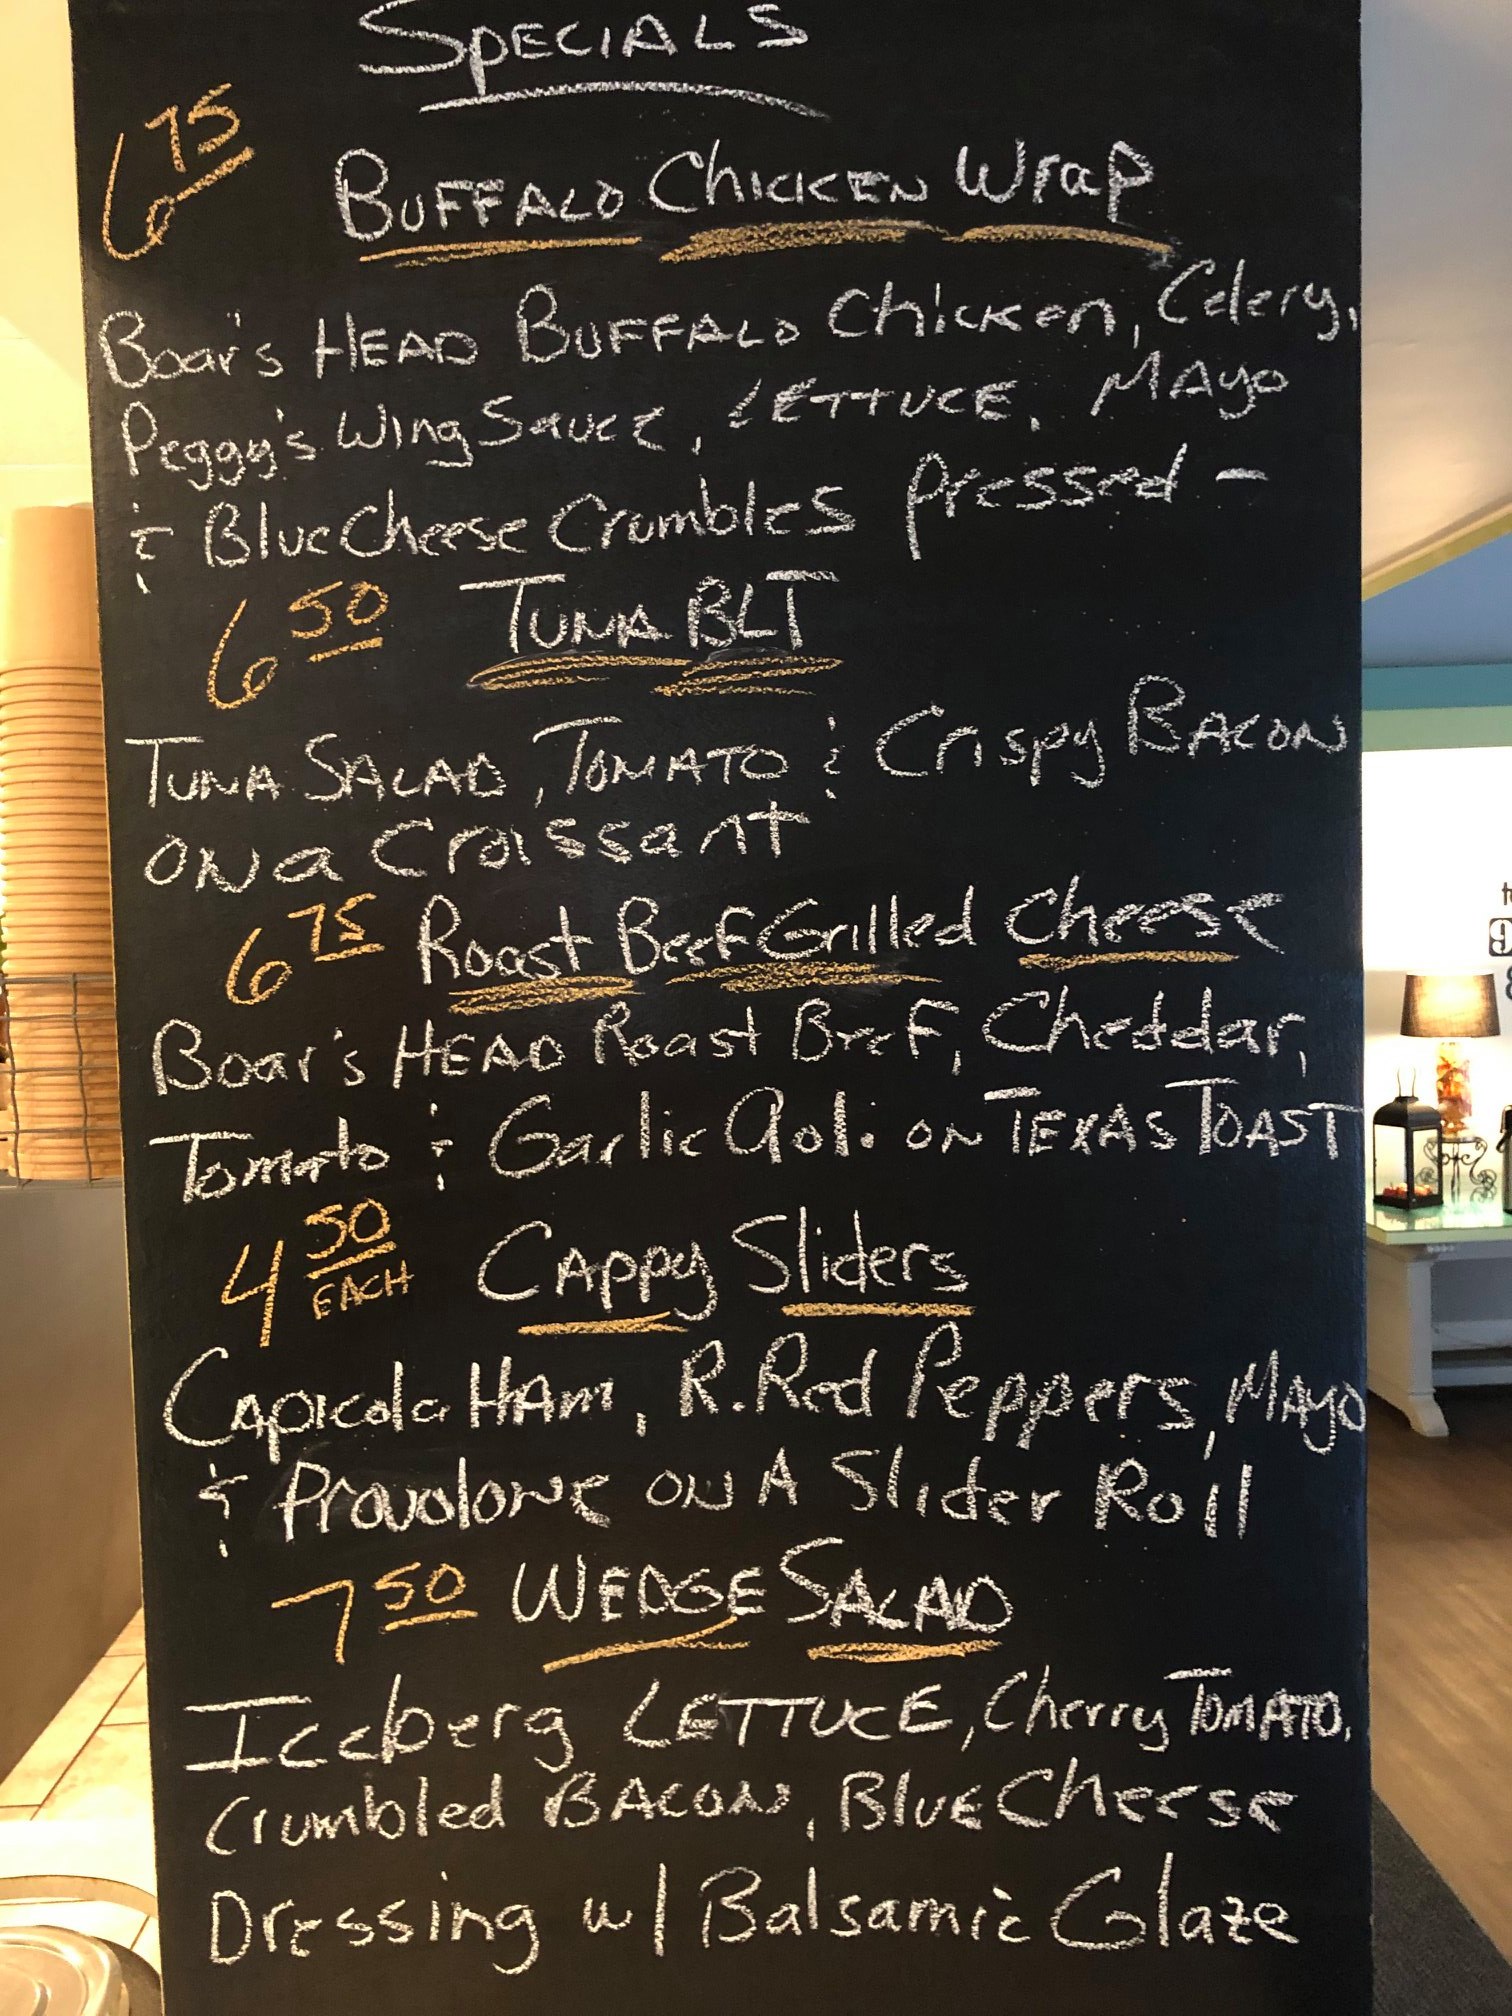 SPECIALS
6 75
BUFFALO Chicken Wrap
Boar's HEAD BUFFALO Chicken, Celery,
Peggy's Wing Sauce, LETTUCE, MAyo
& Blue Cheese Crumbles pressed -
6 50 TUNA BLT
TUNA SALAD, TOMATO & Crispy BACON
ON a Croissant
6 75 Roast Beef Grilled Cheese
Boar's HEAD Roast Beef, Cheddar,
Tomato & Garlic Aoli on TEXAS TOAST
4 50 EACH CAppy Sliders
Capicola HAm, R. Red Peppers, MAyo
& Provolone ON A Slider Roll
7 50 WEDGE SALAD
Iceberg LETTUCE, Cherry TOMATO,
Crumbled BACON, BLUE Cheese
Dressing w/ Balsamic Glaze